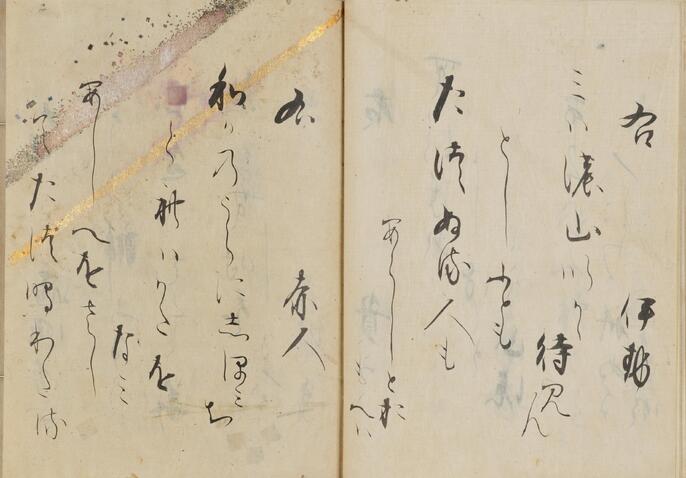 右 伊勢
三わの山いかに
待見ん
としふとも
たつぬる人も
あらしとお
もへは
右 赤人
和かのうらにしほみち
くれはかたを
なみ
あしへをさし
てたつ鳴わたる